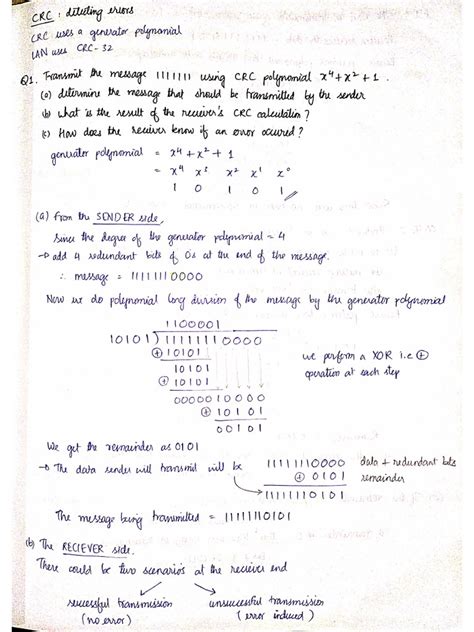 CRC : detecting errors
CRC uses a generator polynomial
LAN uses CRC-32
Q1. Transmit the message 1111111 using CRC polynomial x⁴+x²+1.
(a) determine the message that should be transmitted by the sender
(b) what is the result of the reciever's CRC calculation?
(c) How does the reciever know if an error occured?
generator polynomial = x⁴+x²+1
= x⁴ x³ x² x¹ x⁰
1 0 1 0 1
(a) From the SENDER side,
Since the degree of the generator polynomial = 4
→ add 4 redundant bits of 0s at the end of the message.
∴ message = 11111110000
Now we do polynomial long division of the message by the generator polynomial
1100001
10101 ) 1111111 0000
⊕ 10101
10101
⊕ 10101
00000 10000
⊕ 10101
00101
we perform a XOR i.e ⊕
operation at each step
We get the remainder as 0101
→ The data sender will transmit will be
11111110000 data + redundant bits
⊕ 0101 remainder
11111110101
The message being transmitted = 11111110101
(b) The RECIEVER side.
There could be two scenarios at the reciever end
successful transmission
(no error)
unsuccessful transmission
(error induced)